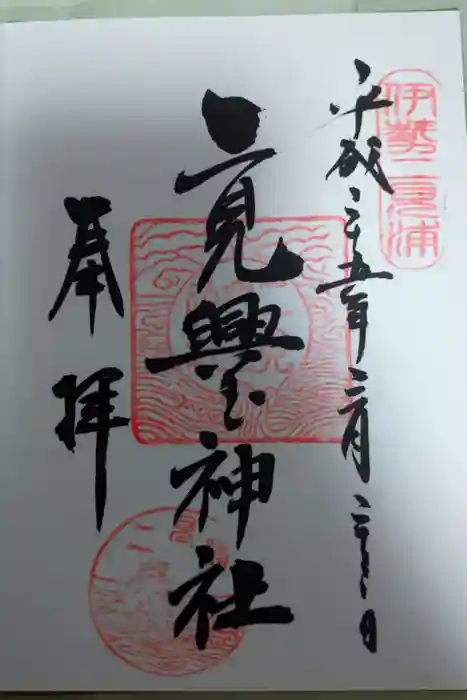 伊勢二見浦
平成二十五年二月二十二日
二見興玉神社
奉拝